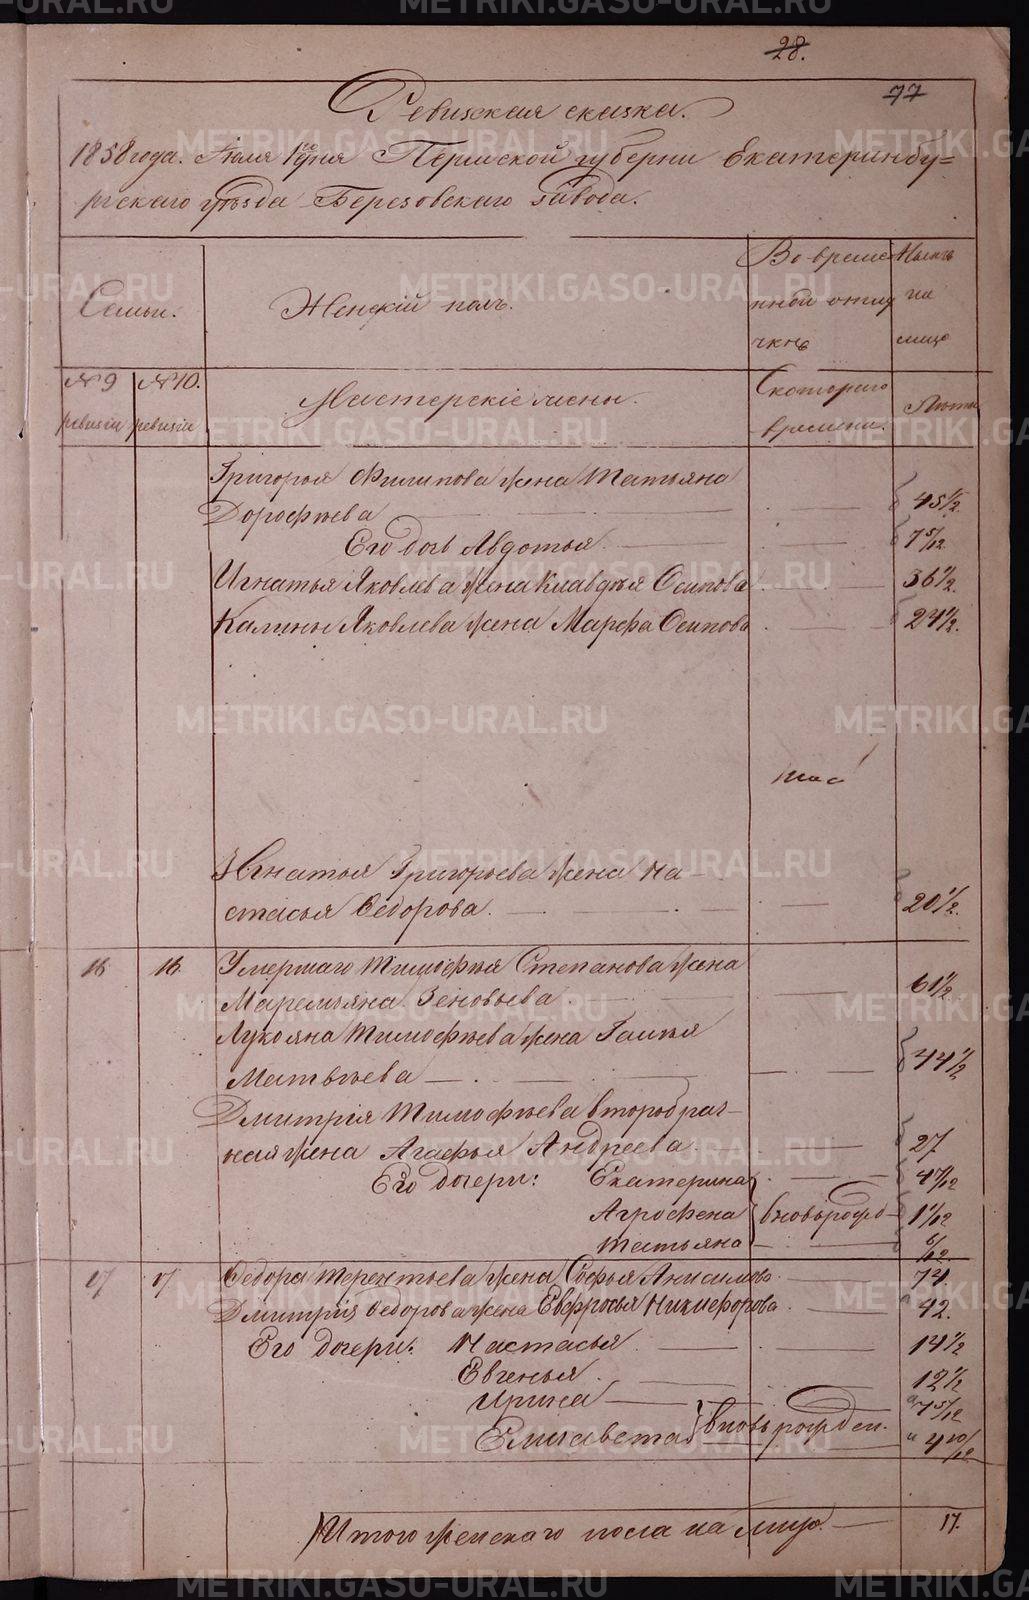 28.
77
Ревизская сказка.
1858 года. Іюля 1го дня Пермской губерни Екатеринбу=
ргскаго уѣзда Березовскаго завода.
Семьи.
Женскій полъ.
Во време
нной отлу
чкѣ
Нынѣ
на
лицо
№ 9
ревизіи
№ 10.
ревизіи
Мастерскіе
Съ котораго
времени.
Лѣта
Григорья Филипова жена Татьяна
Дорофѣева 45 1/2.
Его дочь Авдотья 7 5/12
Игнатья Яковлева жена Клавдѣя Осипова 36 1/2.
Калины Яковлева жена Марфа Осипова 24 1/2.
Игнатья Григорьева жена На
стасья Ѳедорова. 20 1/2.
16 16 Умершаго Тимофѣя Степанова жена
Маремьяна Зеновьева 61 1/2
Лукояна Тимофѣева жена
Матвѣева 44 1/2
Дмитрія Тимофѣева второбрач-
ная жена Агафья Андреева 27
Его дочери: Екатерина
Агрофена вновьрожд 1 1/12
Татьяна 6/12
17 17 Ѳедора Терентьева жена Софья Анисимова 74.
Дмитрія Ѳедорова жена Евфросья Никифорова 42.
Его дочери: Настасья 14 1/2
Евгенья 12 1/2
Ирина 7 5/12
Елисавета вновь рожден. 4 10/12
Итого женскаго пола на лицо 17.
METRIKI.GASO-URAL.RU